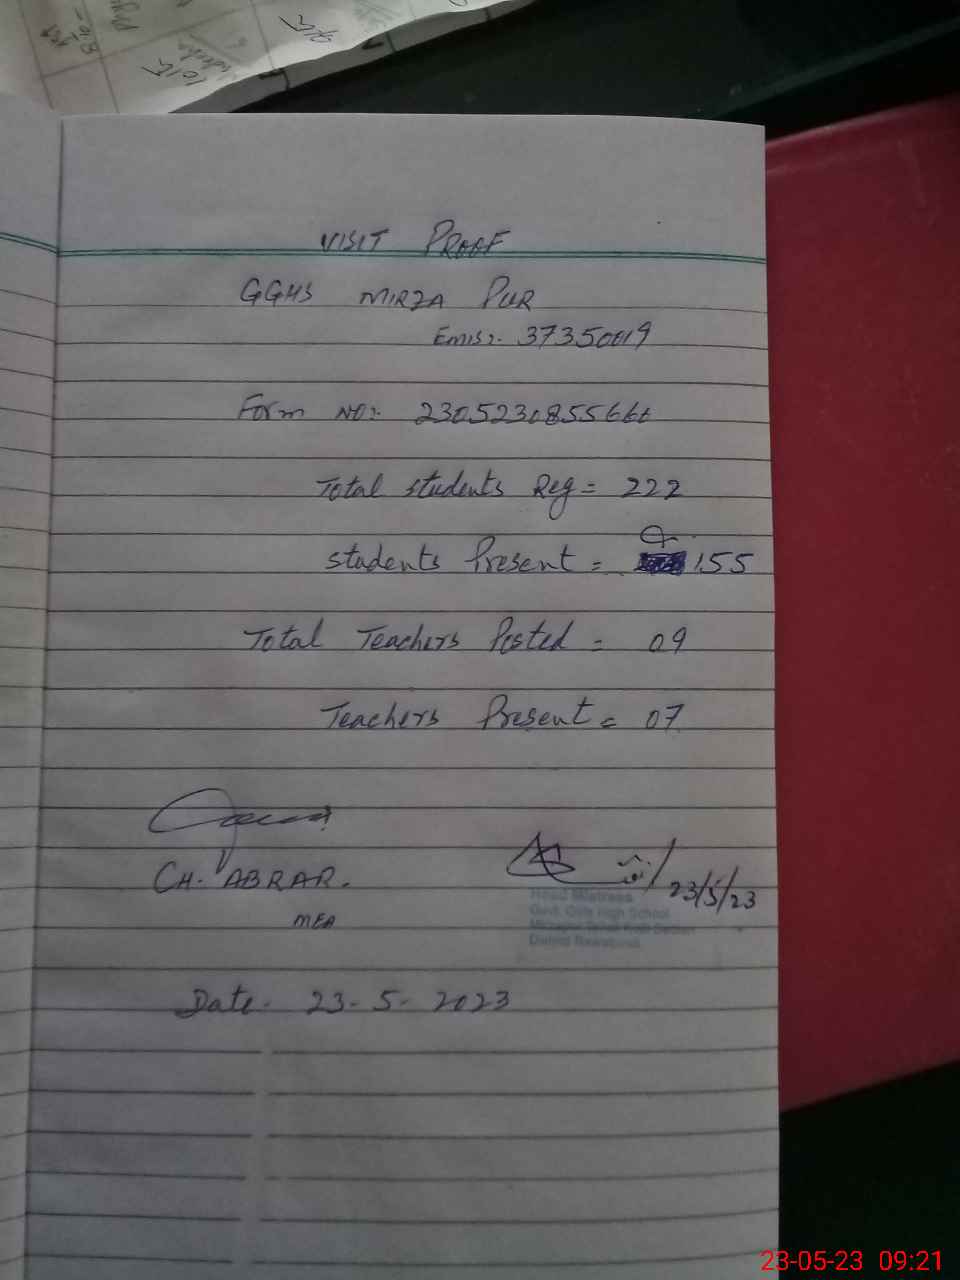 VISIT PROOF
GGHS MIRZA PUR
Emis:- 37350019
Form NO:- 2305230855666
Total students Reg = 222
students Present = 155
Total Teachers Posted = 09
Teachers Present = 07
CH. ABRAR.
MEA
23/5/23
Head Mistress
Govt. Girls High School
Date - 23-5-2023
23-05-23 09:21